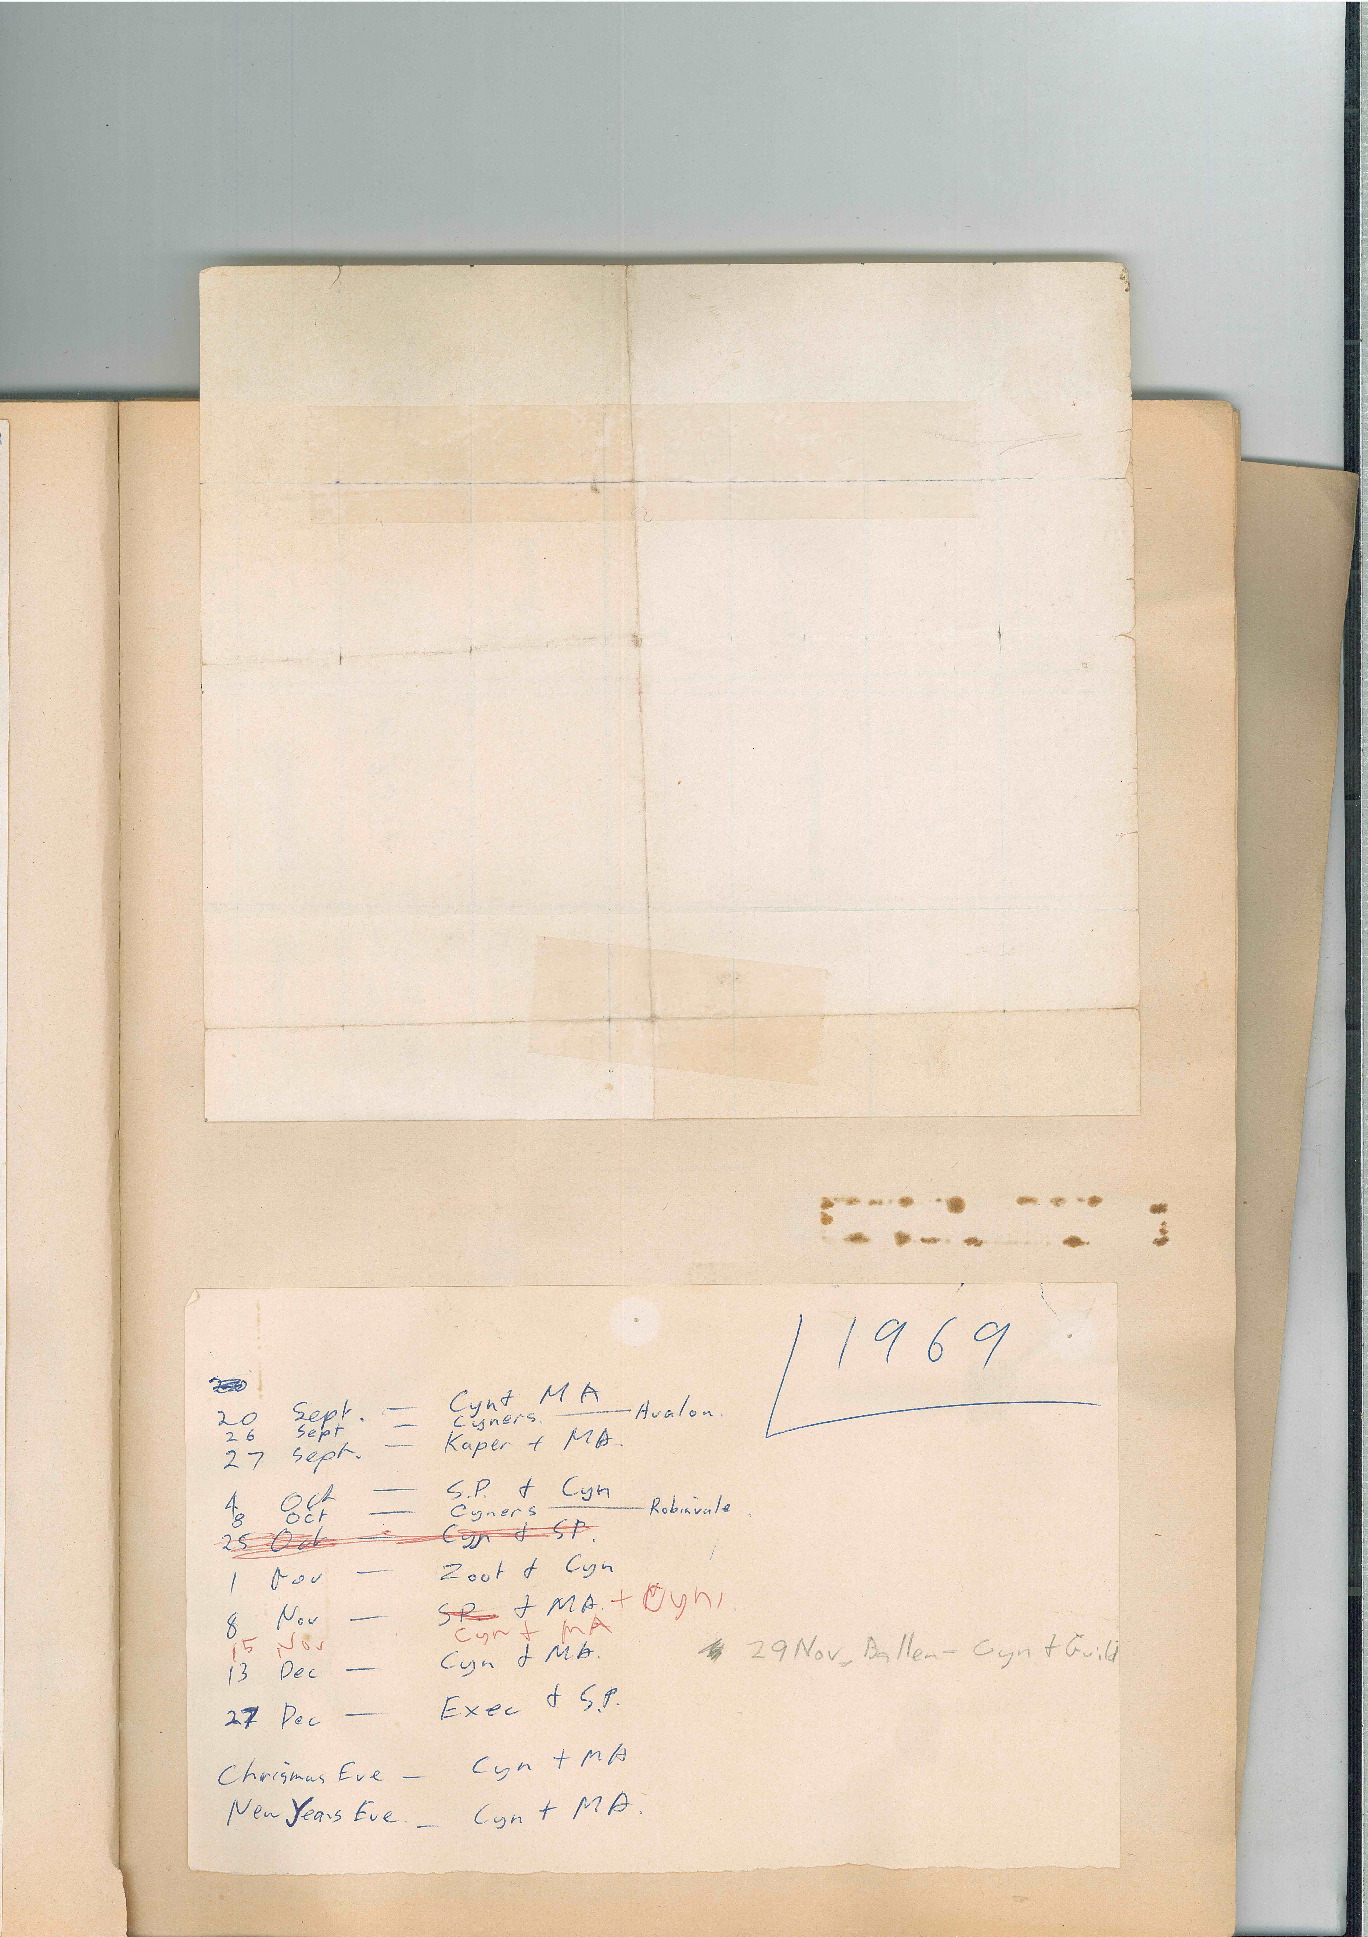 1969
20 Sept. — Cyn + MA
26 Sept — Cyners. — Avalon.
27 Sept. — Kaper + MA.
4 Oct — S.P. + Cyn
8 Oct — Cyners — Robinvale.
25 Oct — Cyn + SP.
1 Nov — Zoot + Cyn
8 Nov — SP. + MA. + Cyn
15 Nov Cyn + MA
13 Dec — Cyn + MA.
29 Nov, — Cyn + Guild
27 Dec — Exec + S.P.
Chrismas Eve — Cyn + MA
New Years Eve. — Cyn + MA.